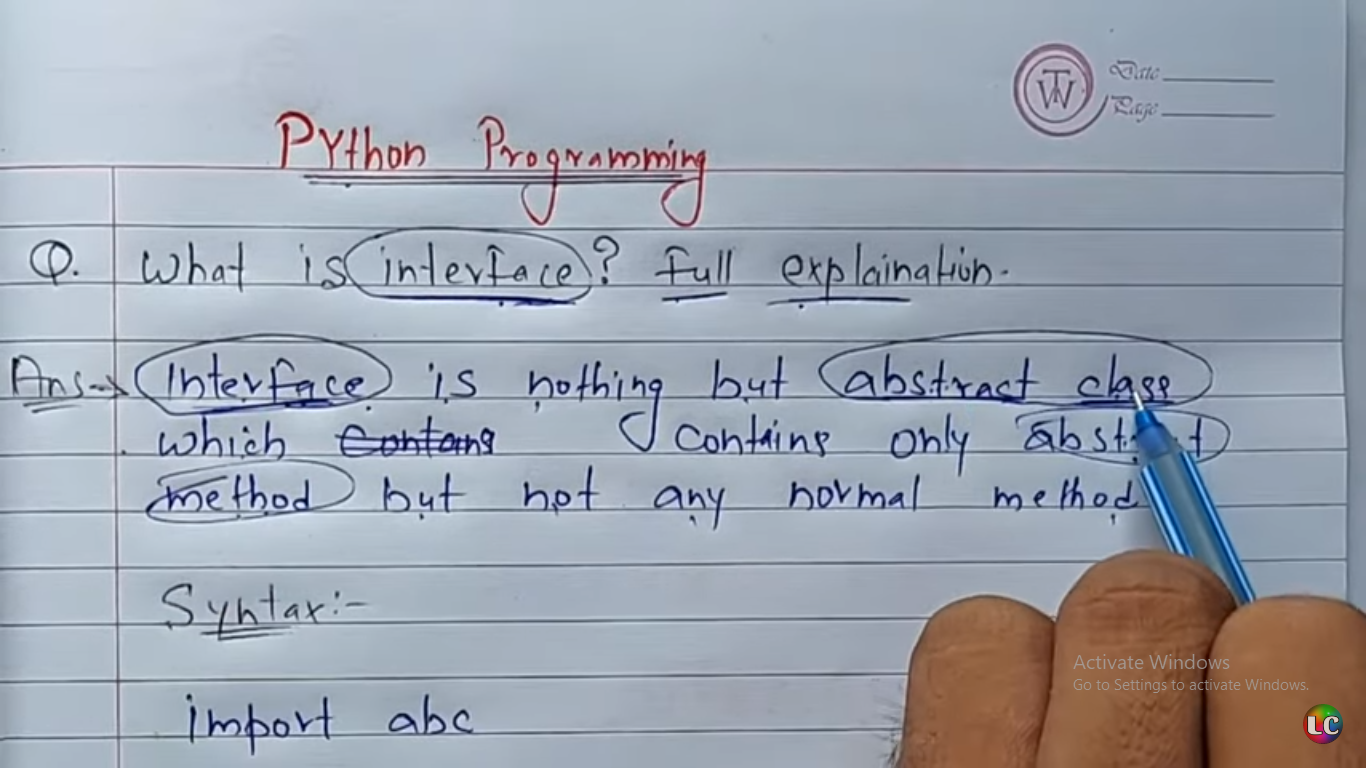 Date
Page
Python Programming
Q. What is interface? Full explaination.
Ans→ Interface is nothing but abstract class
which Contans contains only
method but not any normal method
Syntax:-
import abc
Activate Windows
Go to Settings to activate Windows.
LC